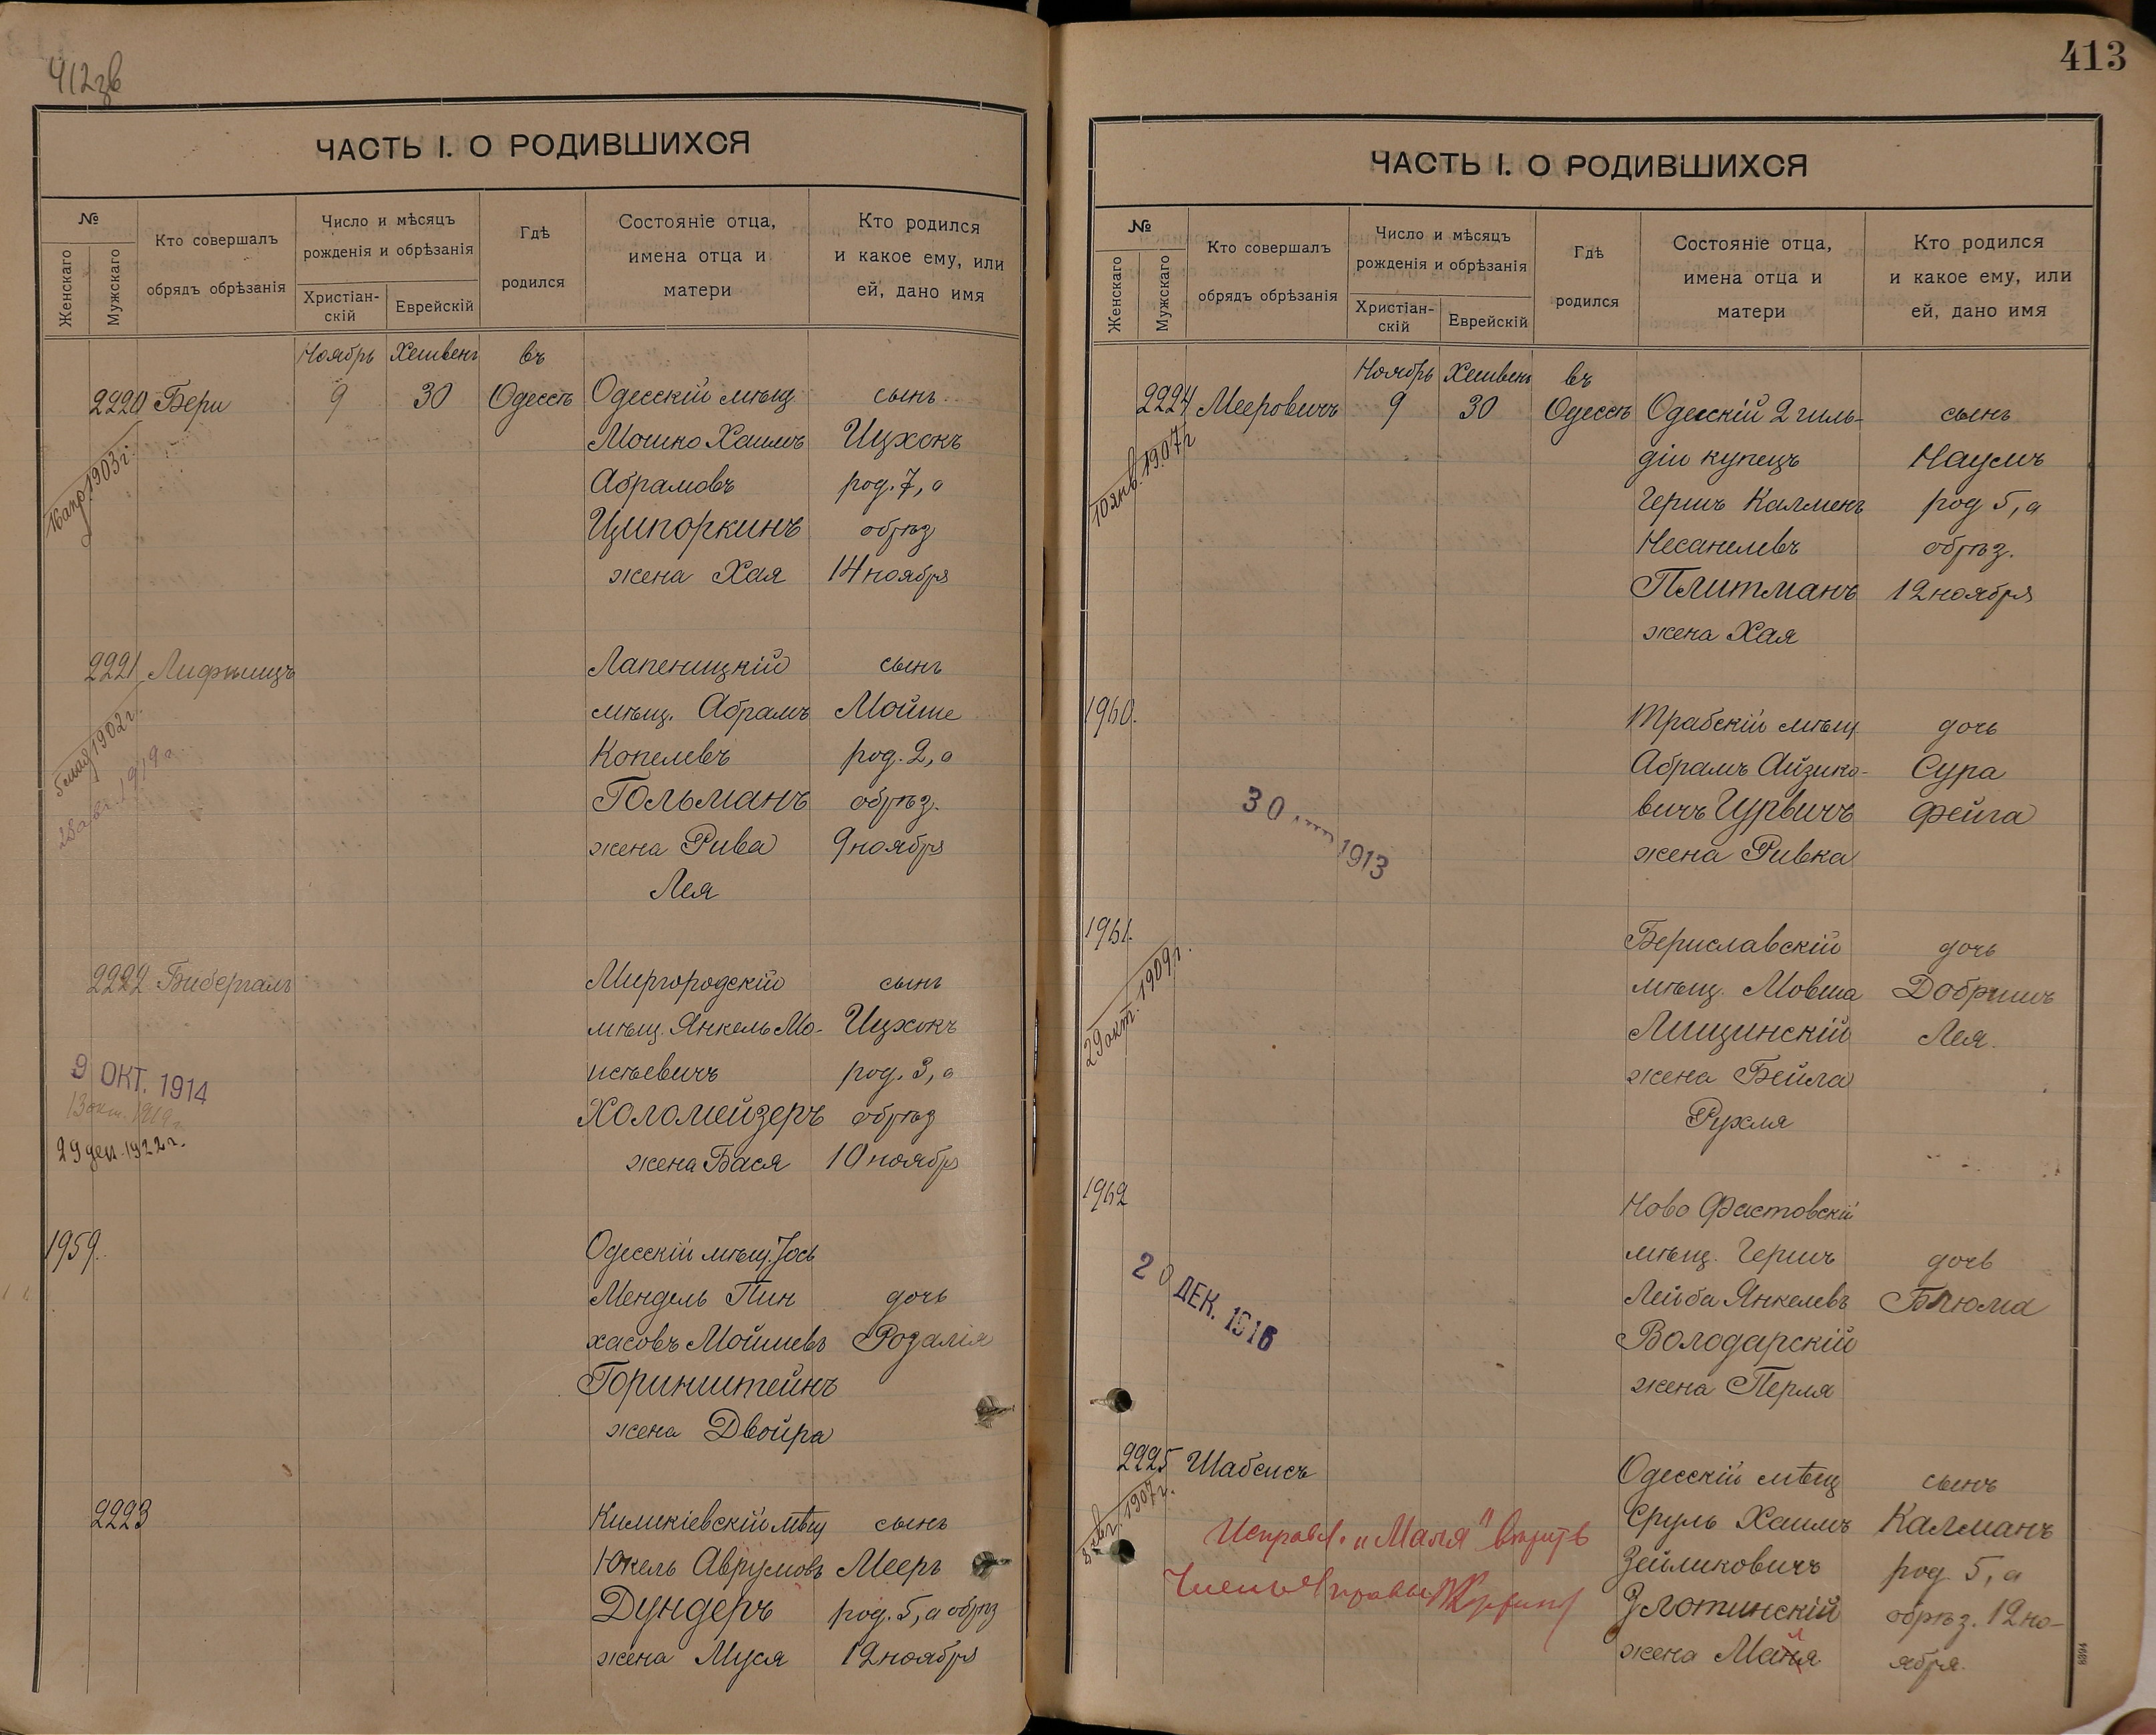 412зв
ЧАСТЬ I. О РОДИВШИХСЯ
№
Женскаго
Мужскаго
Кто совершалъ
обрядъ обрѣзанія
Число и мѣсяцъ
рожденія и обрѣзанія
Христіан-
скій
Еврейскій
Гдѣ
родился
Состояніе отца,
имена отца и
матери
Кто родился
и какое ему, или
ей, дано имя
Ноябрь Хешвенъ въ
2220 Бери 9 30 Одессѣ Одесскій мѣщ. сынъ
Мошко Хаимъ Ицхокъ
16 апр. 1903 г.
Абрамовъ род. 7, а
Ципоркинъ обрѣз
жена Хая 14 ноября
2221 Лифшицъ Лапеницкій сынъ
мѣщ. Абрамъ Мойше
5 мая 1902 г.
Копелевъ род. 2, а
1919 г.
Гольманъ обрѣз.
жена Рива 9 ноября
Лея
2222 Бибергалъ Миргородскій сынъ
мѣщ. Янкель Мо- Ицхокъ
9 ОКТ. 1914
исѣевичъ род. 3, а
13 окт. 1919 г.
Холомейзеръ обрѣз
29 дек. 1922 г.
жена Бася 10 ноября
1959. Одесскій мѣщ. Іось
Мендель Пин дочь
хасовъ Мойшевъ Розалія
Горинштейнъ
жена Двойра
2223 Киликіевскій мѣщ сынъ
Юкель Аврумовъ Мееръ
Дундеръ род. 5, а обрѣз
жена Муся 12 ноября
413
ЧАСТЬ I. О РОДИВШИХСЯ
№
Женскаго
Мужскаго
Кто совершалъ
обрядъ обрѣзанія
Число и мѣсяцъ
рожденія и обрѣзанія
Христіан-
скій
Еврейскій
Гдѣ
родился
Состояніе отца,
имена отца и
матери
Кто родился
и какое ему, или
ей, дано имя
Ноябрь Хешвенъ въ
2224 Мееровичъ 9 30 Одессѣ Одесскій 2 гиль- сынъ
10 янв. 1907 г
діи купецъ Наумъ
Гершъ Калменъ род 5, а
Несанелевъ обрѣз.
Плитманъ 12 ноября
жена Хая
1960. Трабскій мѣщ дочь
Абрамъ Айзико- Сура
30 1913
вичъ Гурвичъ Фейга
жена Ривка
1961. Бериславскій дочь
29 окт. 1909 г.
мѣщ. Мовша Добришъ
Лищинскій Лея.
жена Бейла
Рухля
1962 Ново Фастовскій
мѣщ. Гершъ дочь
20 ДЕК. 1916
Лейба Янкелевъ Блюма
Володарскій
жена Перля
2225 Шабсисъ Одесскій мѣщ сынъ
1907 г.
Сруль Хаимъ Калманъ
Исправл. „Маля"
Зейликовичъ род 5, а
Членъ Управы
Злотинскій обрѣз. 12 но-
жена Маля ября.